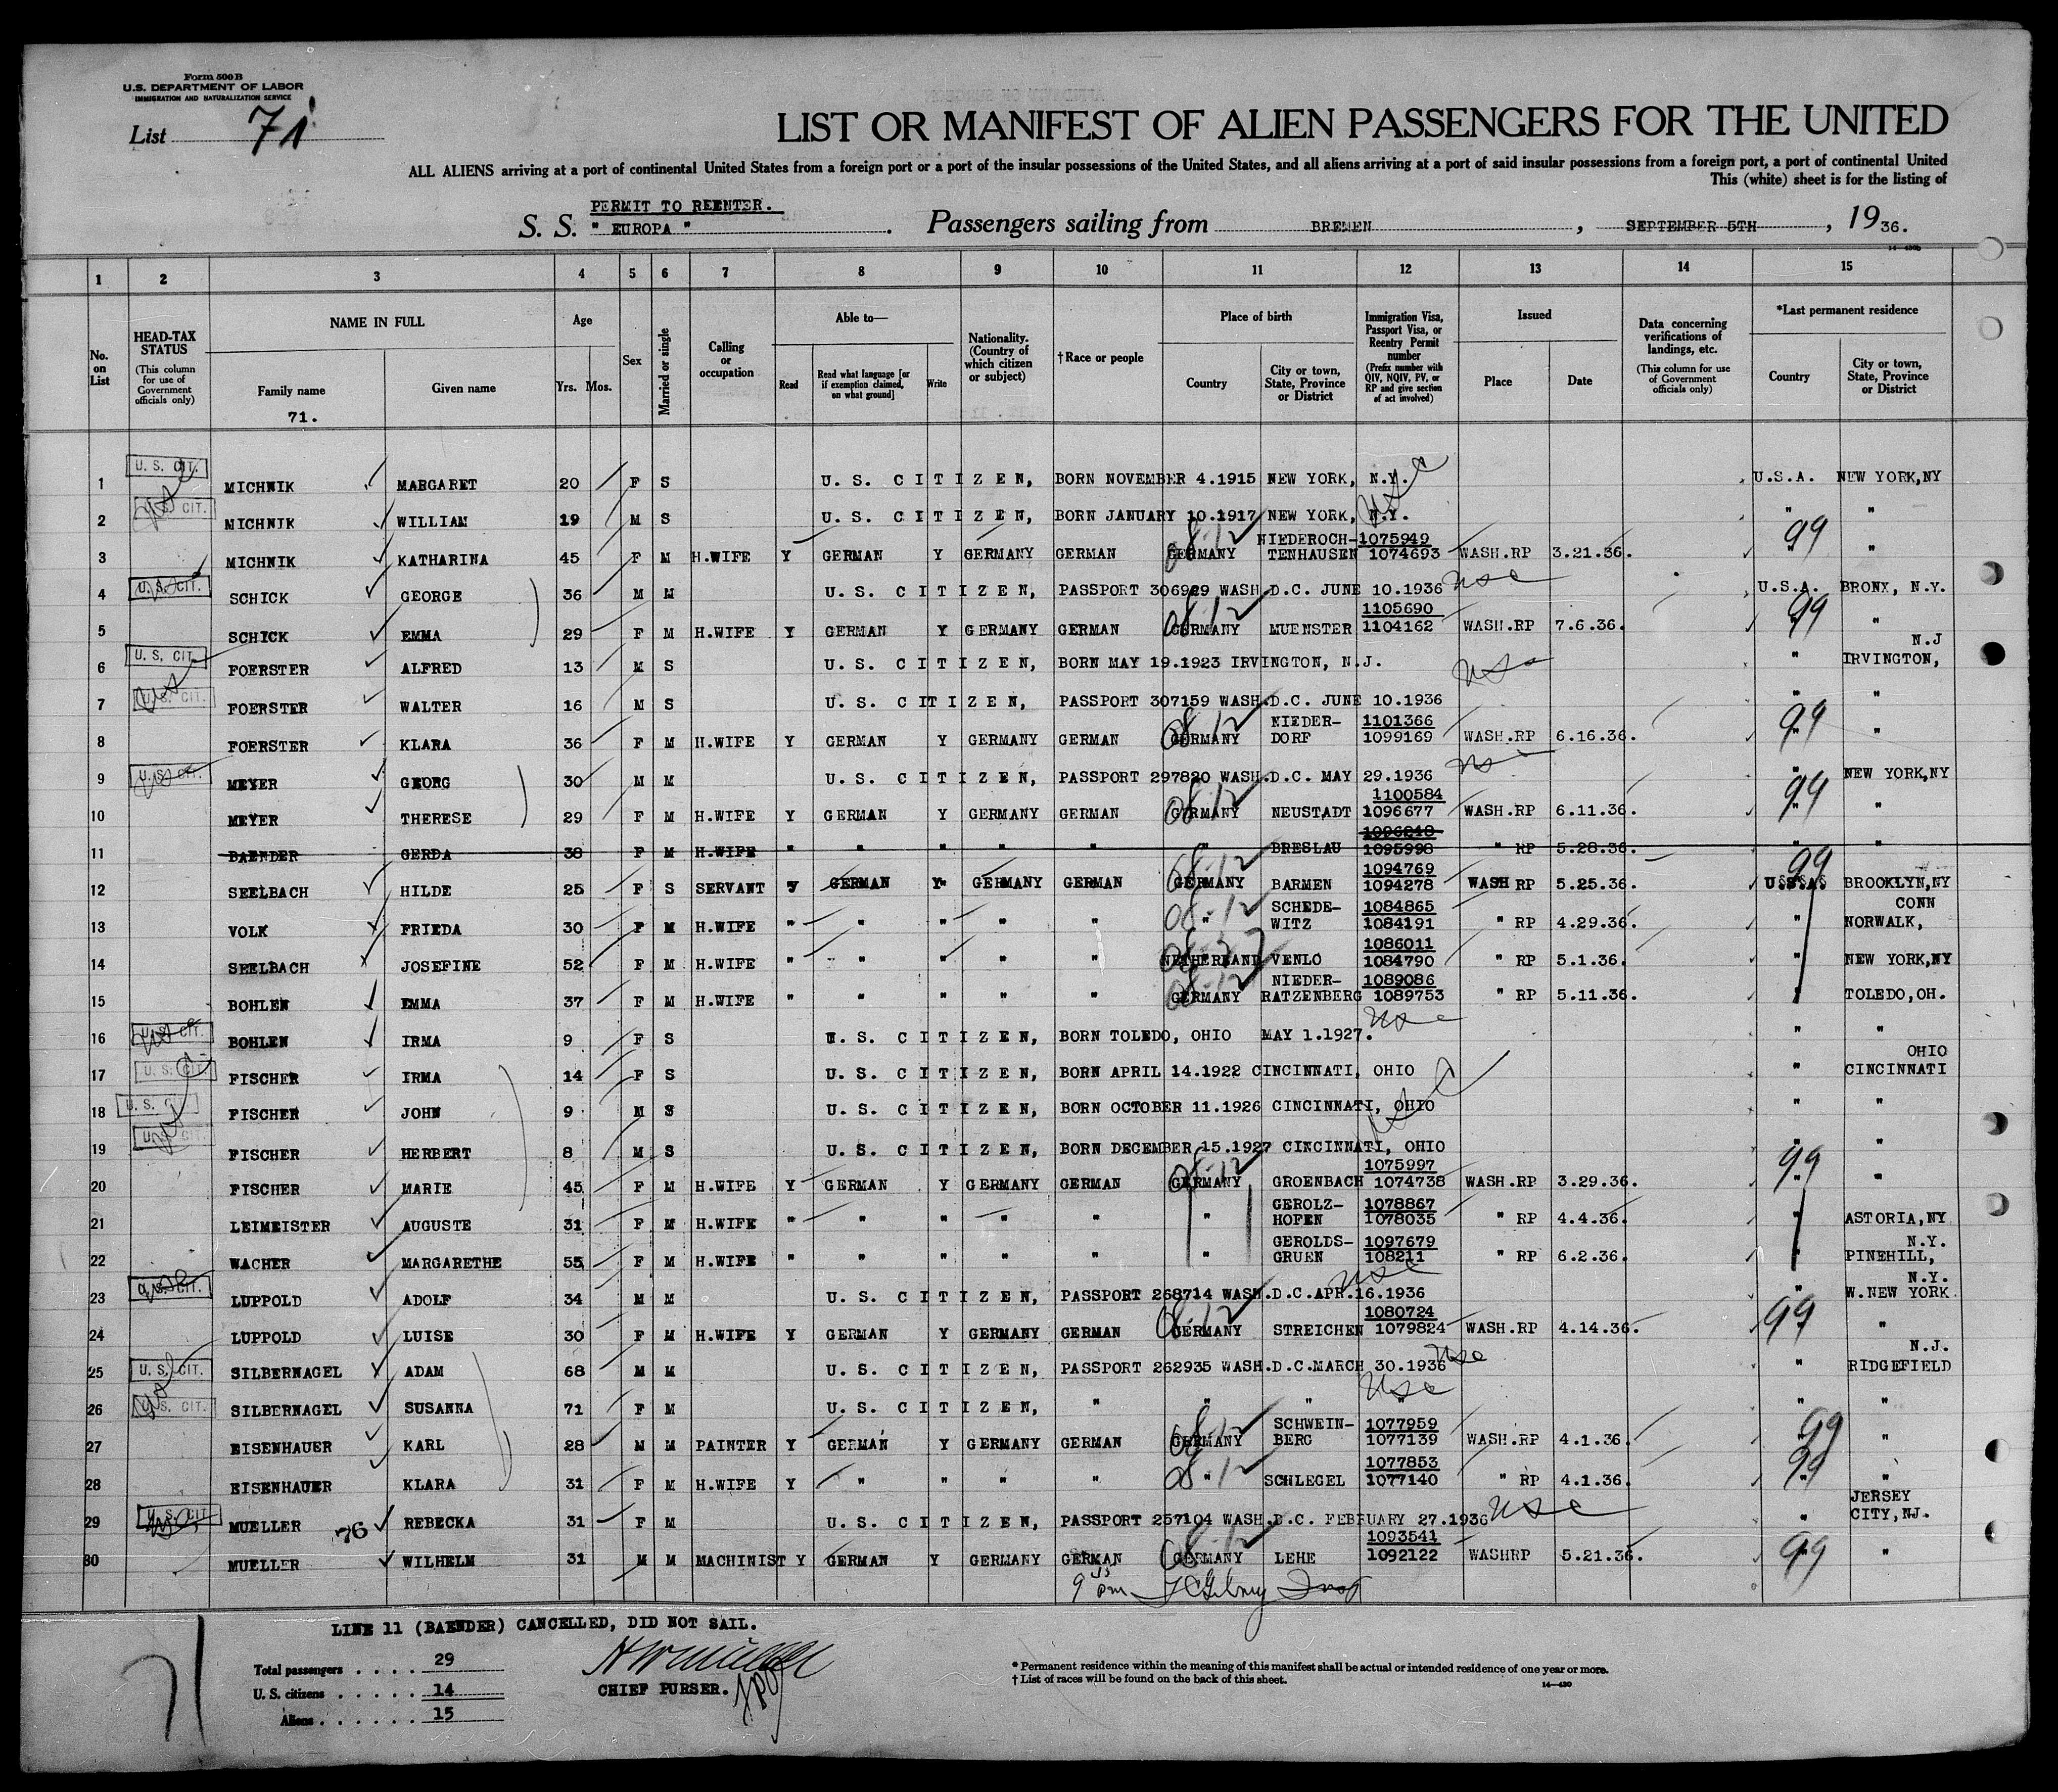 Form 500B
U.S. DEPARTMENT OF LABOR
IMMIGRATION AND NATURALIZATION SERVICE
List 71
LIST OR MANIFEST OF ALIEN PASSENGERS FOR THE UNITED
ALL ALIENS arriving at a port of continental United States from a foreign port or a port of the insular possessions of the United States, and all aliens arriving at a port of said insular possessions from a foreign port, a port of continental United
This (white) sheet is for the listing of
PERMIT TO REENTER.
S. S. " EUROPA " . Passengers sailing from BREMEN , SEPTEMBER 5TH , 1936.
1 2 3 4 5 6 7 8 9 10 11 12 13 14 15
No. on List
HEAD-TAX STATUS (This column for use of Government officials only)
NAME IN FULL
Family name
Given name
71.
Age
Yrs. Mos.
Sex
Married or single
Calling or occupation
Able to—
Read
Read what language [or if exemption claimed, on what ground]
Write
Nationality. (Country of which citizen or subject)
†Race or people
Place of birth
Country
City or town, State, Province or District
Immigration Visa, Passport Visa, or Reentry Permit number (Prefix number with QIV, NQIV, PV, or RP and give section of act involved)
Issued
Place
Date
Data concerning verifications of landings, etc. (This column for use of Government officials only)
*Last permanent residence
Country
City or town, State, Province or District
1 U. S. CIT. MICHNIK MARGARET 20 F S U. S. CITIZEN, BORN NOVEMBER 4.1915 NEW YORK, N.Y. U.S.A. NEW YORK,NY
2 U. S. CIT. MICHNIK WILLIAM 19 M S U. S. CITIZEN, BORN JANUARY 10.1917 NEW YORK, N.Y. " "
3 MICHNIK KATHARINA 45 F M H.WIFE Y GERMAN Y GERMANY GERMAN 08-12 GERMANY NIEDEROCH-TENHAUSEN 1075949 1074693 WASH.RP 3.21.36. 99 " "
4 U. S. CIT. SCHICK GEORGE 36 M M U. S. CITIZEN, PASSPORT 306929 WASH.D.C. JUNE 10.1936 usc U.S.A. BRONX, N.Y.
5 SCHICK EMMA 29 F M H.WIFE Y GERMAN Y GERMANY GERMAN 08-12 GERMANY MUENSTER 1105690 1104162 WASH.RP 7.6.36. 99 " "
6 U. S. CIT. FOERSTER ALFRED 13 M S U. S. CITIZEN, BORN MAY 19.1923 IRVINGTON, N.J. usc " N.J IRVINGTON,
7 U. S. CIT. FOERSTER WALTER 16 M S U. S. CITIZEN, PASSPORT 307159 WASH.D.C. JUNE 10.1936 " "
8 FOERSTER KLARA 36 F M H.WIFE Y GERMAN Y GERMANY GERMAN 08-12 GERMANY NIEDER-DORF 1101366 1099169 WASH.RP 6.16.36. 99 " "
9 U. S. CIT. MEYER GEORG 30 M M U. S. CITIZEN, PASSPORT 297820 WASH.D.C. MAY 29.1936 " NEW YORK,NY
10 MEYER THERESE 29 F M H.WIFE Y GERMAN Y GERMANY GERMAN 08-12 GERMANY NEUSTADT 1100584 1096677 WASH.RP 6.11.36. 99 " "
11 BAENDER GERDA 38 F M H.WIFE " " " " " " BRESLAU 1096248 1095998 " RP 5.28.36. " "
12 SEELBACH HILDE 25 F S SERVANT Y GERMAN Y GERMANY GERMAN 08-12 GERMANY BARMEN 1094769 1094278 WASH RP 5.25.36. 99 U.S.A. BROOKLYN,NY
13 VOLK FRIEDA 30 F M H.WIFE " " " " " 08-12 " SCHEDE-WITZ 1084865 1084191 " RP 4.29.36. " CONN NORWALK,
14 SEELBACH JOSEFINE 52 F M H.WIFE " " " " " NETHERLAND VENLO 1086011 1084790 " RP 5.1.36. NEW YORK,NY
15 BOHLEN EMMA 37 F M H.WIFE " " " " " 08-12 GERMANY NIEDER-RATZENBERG 1089086 1089753 " RP 5.11.36. " TOLEDO,OH.
16 U. S. CIT. BOHLEN IRMA 9 F S U. S. CITIZEN, BORN TOLEDO, OHIO MAY 1.1927. usc " "
17 U. S. CIT. FISCHER IRMA 14 F S U. S. CITIZEN, BORN APRIL 14.1922 CINCINNATI, OHIO " OHIO CINCINNATI
18 U. S. CIT. FISCHER JOHN 9 M S U. S. CITIZEN, BORN OCTOBER 11.1926 CINCINNATI, OHIO " "
19 U. S. CIT. FISCHER HERBERT 8 M S U. S. CITIZEN, BORN DECEMBER 15.1927 CINCINNATI, OHIO " "
20 FISCHER MARIE 45 F M H.WIFE Y GERMAN Y GERMANY GERMAN 08-12 GERMANY GROENBACH 1075997 1074738 WASH.RP 3.29.36. 99 " "
21 LEIMEISTER AUGUSTE 31 F M H.WIFE " " " " " " GEROLZ-HOFEN 1078867 1078035 " RP 4.4.36. " ASTORIA,NY
22 WACHER MARGARETHE 55 F M H.WIFE " " " " " " GEROLDS-GRUEN 1097679 108211 " RP 6.2.36. " N.Y. PINEHILL,
23 U. S. CIT. LUPPOLD ADOLF 34 M M U. S. CITIZEN, PASSPORT 268714 WASH.D.C.APR.16.1936 usc " N.Y. W.NEW YORK
24 LUPPOLD LUISE 30 F M H.WIFE Y GERMAN Y GERMANY GERMAN 08-12 GERMANY STREICHEN 1080724 1079824 WASH.RP 4.14.36. 99 "
25 U. S. CIT. SILBERNAGEL ADAM 68 M M U. S. CITIZEN, PASSPORT 262935 WASH.D.C.MARCH 30.1936 usc " N.J. RIDGEFIELD
26 U. S. CIT. SILBERNAGEL SUSANNA 71 F M U. S. CITIZEN, " " " " usc " "
27 EISENHAUER KARL 28 M M PAINTER Y GERMAN Y GERMANY GERMAN 08-12 GERMANY SCHWEIN-BERG 1077959 1077139 WASH.RP 4.1.36. 99 "
28 EISENHAUER KLARA 31 F M H.WIFE Y " " " " 08-12 " SCHLEGEL 1077853 1077140 " RP 4.1.36. 99 " "
29 U. S. CIT. MUELLER 76 REBECKA 31 F M U. S. CITIZEN, PASSPORT 257104 WASH.D.C. FEBRUARY 27.1936 usc " JERSEY CITY,NJ.
30 MUELLER WILHELM 31 M M MACHINIST Y GERMAN Y GERMANY GERMAN 08-12 GERMANY LEHE 1093541 1092122 WASHRP 5.21.36. 99 "
9 15 pm
LINE 11 (BAENDER) CANCELLED, DID NOT SAIL.
71
Total passengers . . . . 29
U. S. citizens . . . . . 14
Aliens . . . . . . 15
CHIEF PURSER.
* Permanent residence within the meaning of this manifest shall be actual or intended residence of one year or more.
† List of races will be found on the back of this sheet.
14—430